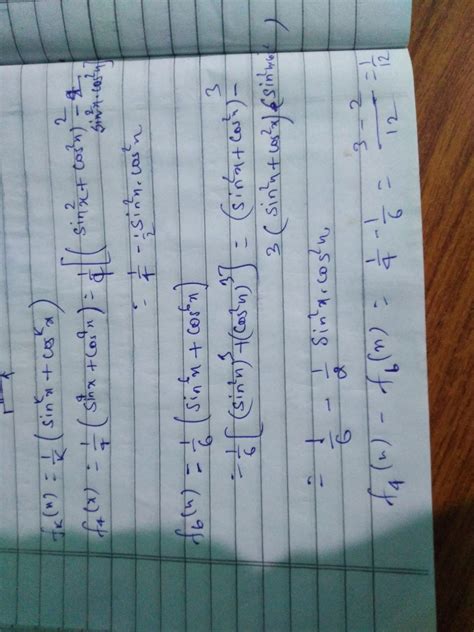 fₖ(x) = 1/k (sinᵏx + cosᵏx)
f₄(x) = 1/4 (sin⁴x + cos⁴x) = 1/4 [(sin²x + cos²x)² - 2 sin²x·cos²x]
= 1/4 - 1/2 sin²x·cos²x
f₆(x) = 1/6 (sin⁶x + cos⁶x)
= 1/6 [(sin²x)³ + (cos²x)³] = (sin²x + cos²x)³ -
3 (sin²x + cos²x)
= 1/6 - 1/2 sin²x·cos²x
f₄(x) - f₆(x) = 1/4 - 1/6 = 3 - 2 / 12 = 1/12